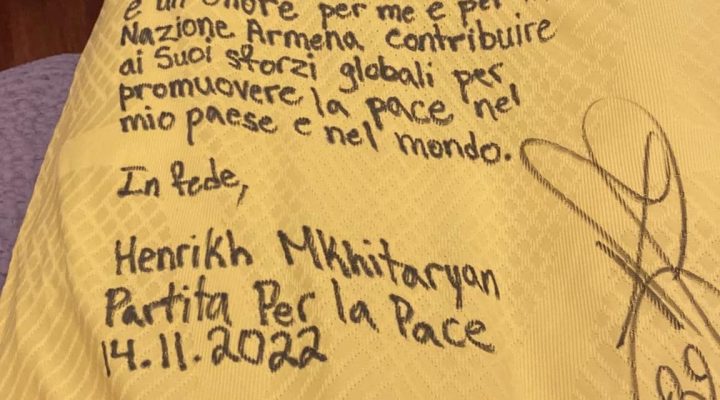 è un onore per me e per
Nazione Armena contribuire
ai Suoi sforzi globali per
promuovere la pace nel
mio paese e nel mondo.
In fede,
Henrikh Mkhitaryan
Partita Per la Pace
14.11.2022